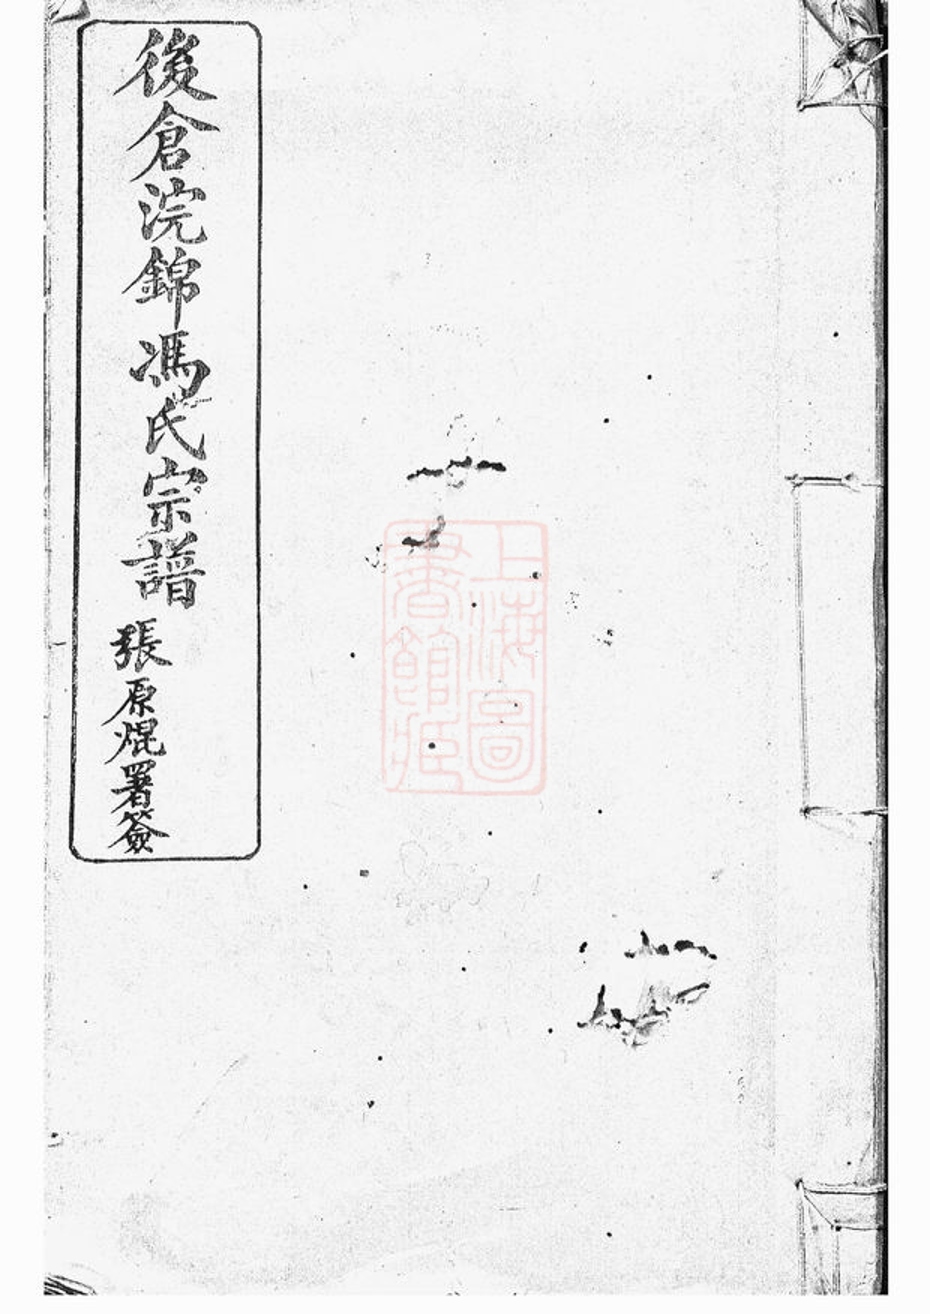 後倉浣錦馮氏宗譜
張原焜署簽
上海圖
書館藏